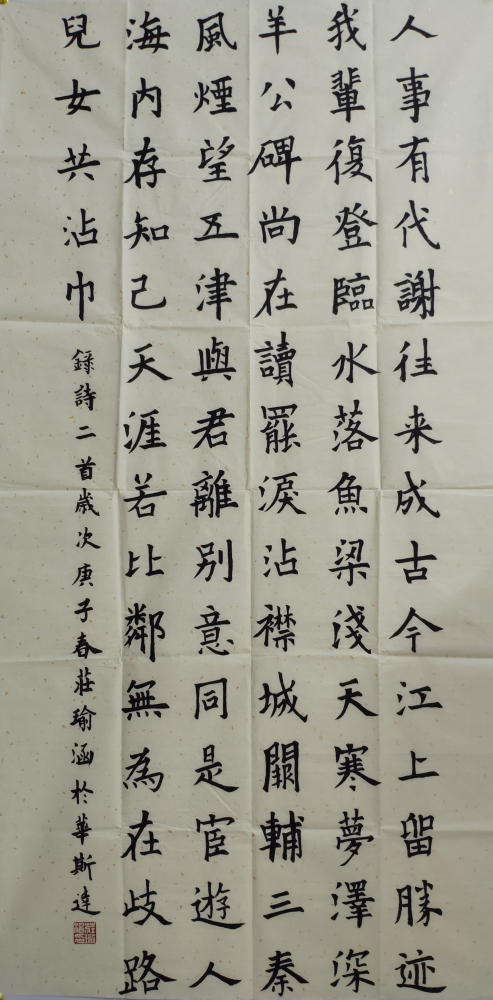 人事有代謝往来成古今江上留勝迹
我輩復登臨水落魚梁淺天寒夢澤深
羊公碑尚在讀罷淚沾襟城闕輔三秦
風煙望五津與君離別意同是宦遊人
海内存知己天涯若比鄰無為在歧路
兒女共沾巾
錄詩二首歲次庚子春莊瑜涵於華斯達